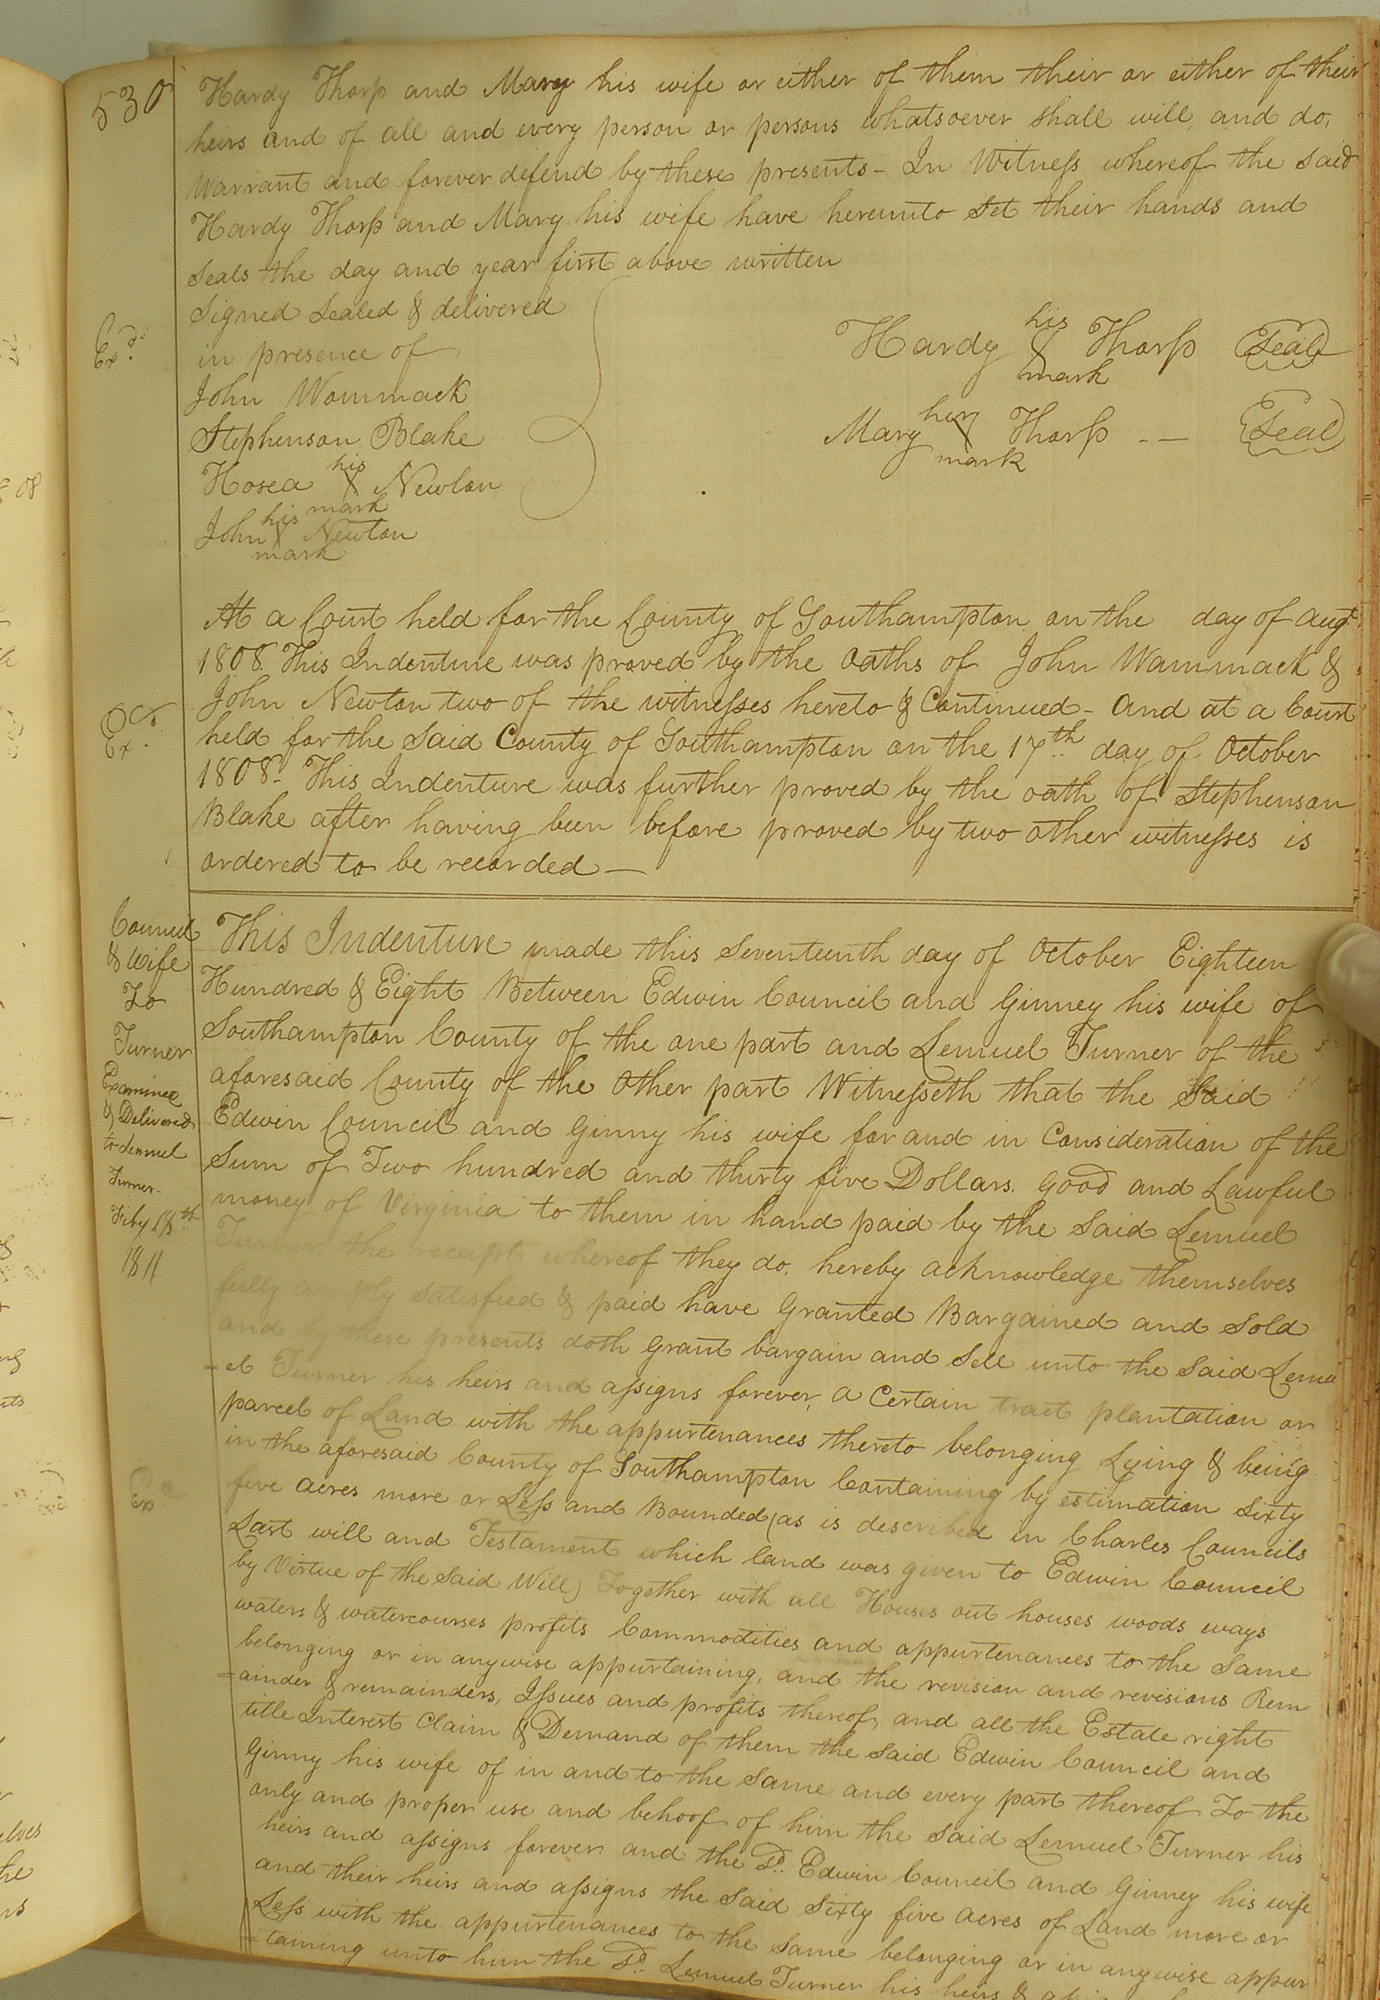 530
Hardy Thorp and Mary his wife or either of them their or either of their
heirs and of all and every person or persons whatsoever shall will and do,
Warrant and forever defend by these presents - In Witness whereof the said
Hardy Thorp and Mary his wife have hereunto Set their hands and
Seals the day and year first above written
Signed Sealed & delivered
in presence of
John Wommack
Stephenson Blake
Hosea his X mark Newton
John his X mark Newton
Hardy his X mark Thorp Seal
Mary her X mark Thorp -- Seal
Exd.
At a Court held for the County of Southampton on the day of Augt.
1808. This Indenture was proved by the Oaths of John Wammack &
John Newton two of the witnesses hereto & Continued - And at a Court
held for the Said County of Southampton on the 17th day of October
1808 - This Indenture was further proved by the oath of Stephenson
Blake after having been before proved by two other witnesses is
ordered to be recorded —
Ex.
Council
& Wife
To
Turner
Examined
& Delivered
to Lemuel
Turner
Feby 18th
1811
This Indenture made this Seventeenth day of October Eighteen
Hundred & Eight Between Edwin Council and Ginney his wife of
Southampton County of the one part and Lemuel Turner of the
aforesaid County of the Other part Witnesseth that the Said
Edwin Council and Ginny his wife for and in Consideration of the
Sum of Two hundred and thirty five Dollars. Good and Lawful
money of Virginia to them in hand paid by the Said Lemuel
Turner the receipt whereof they do. hereby acknowledge themselves
fully satisfied & paid have Granted Bargained and Sold
and by these presents doth Grant bargain and Sell unto the Said Lemu
=el Turner his heirs and assigns forever, a Certain tract plantation or
parcel of Land with the appurtenances thereto belonging Lying & being
in the aforesaid County of Southampton Containing by estimation Sixty
five acres more or Less and Bounded (as is described in Charles Councils
Last will and Testament which land was given to Edwin Council
by Virtue of the Said Will) Together with all Houses out houses woods ways
waters & watercourses profits Commodities and appurtenances to the Same
belonging or in anywise appurtaining, and the revision and revisions Rem
=ainder & remainders, Issues and profits thereof, and all the Estate right
title Interest Claim & Demand of them the Said Edwin Council and
Ginny his wife of in and to the Same and every part thereof To the
only and proper use and behoof of him the Said Lemuel Turner his
heirs and assigns forever and the Sd. Edwin Council and Ginney his wife
and their heirs and assigns the Said Sixty five acres of Land more or
Less with the appurtenances to the Same belonging or in anywise appur
=taining unto him the Sd. Lemuel Turner his heirs &